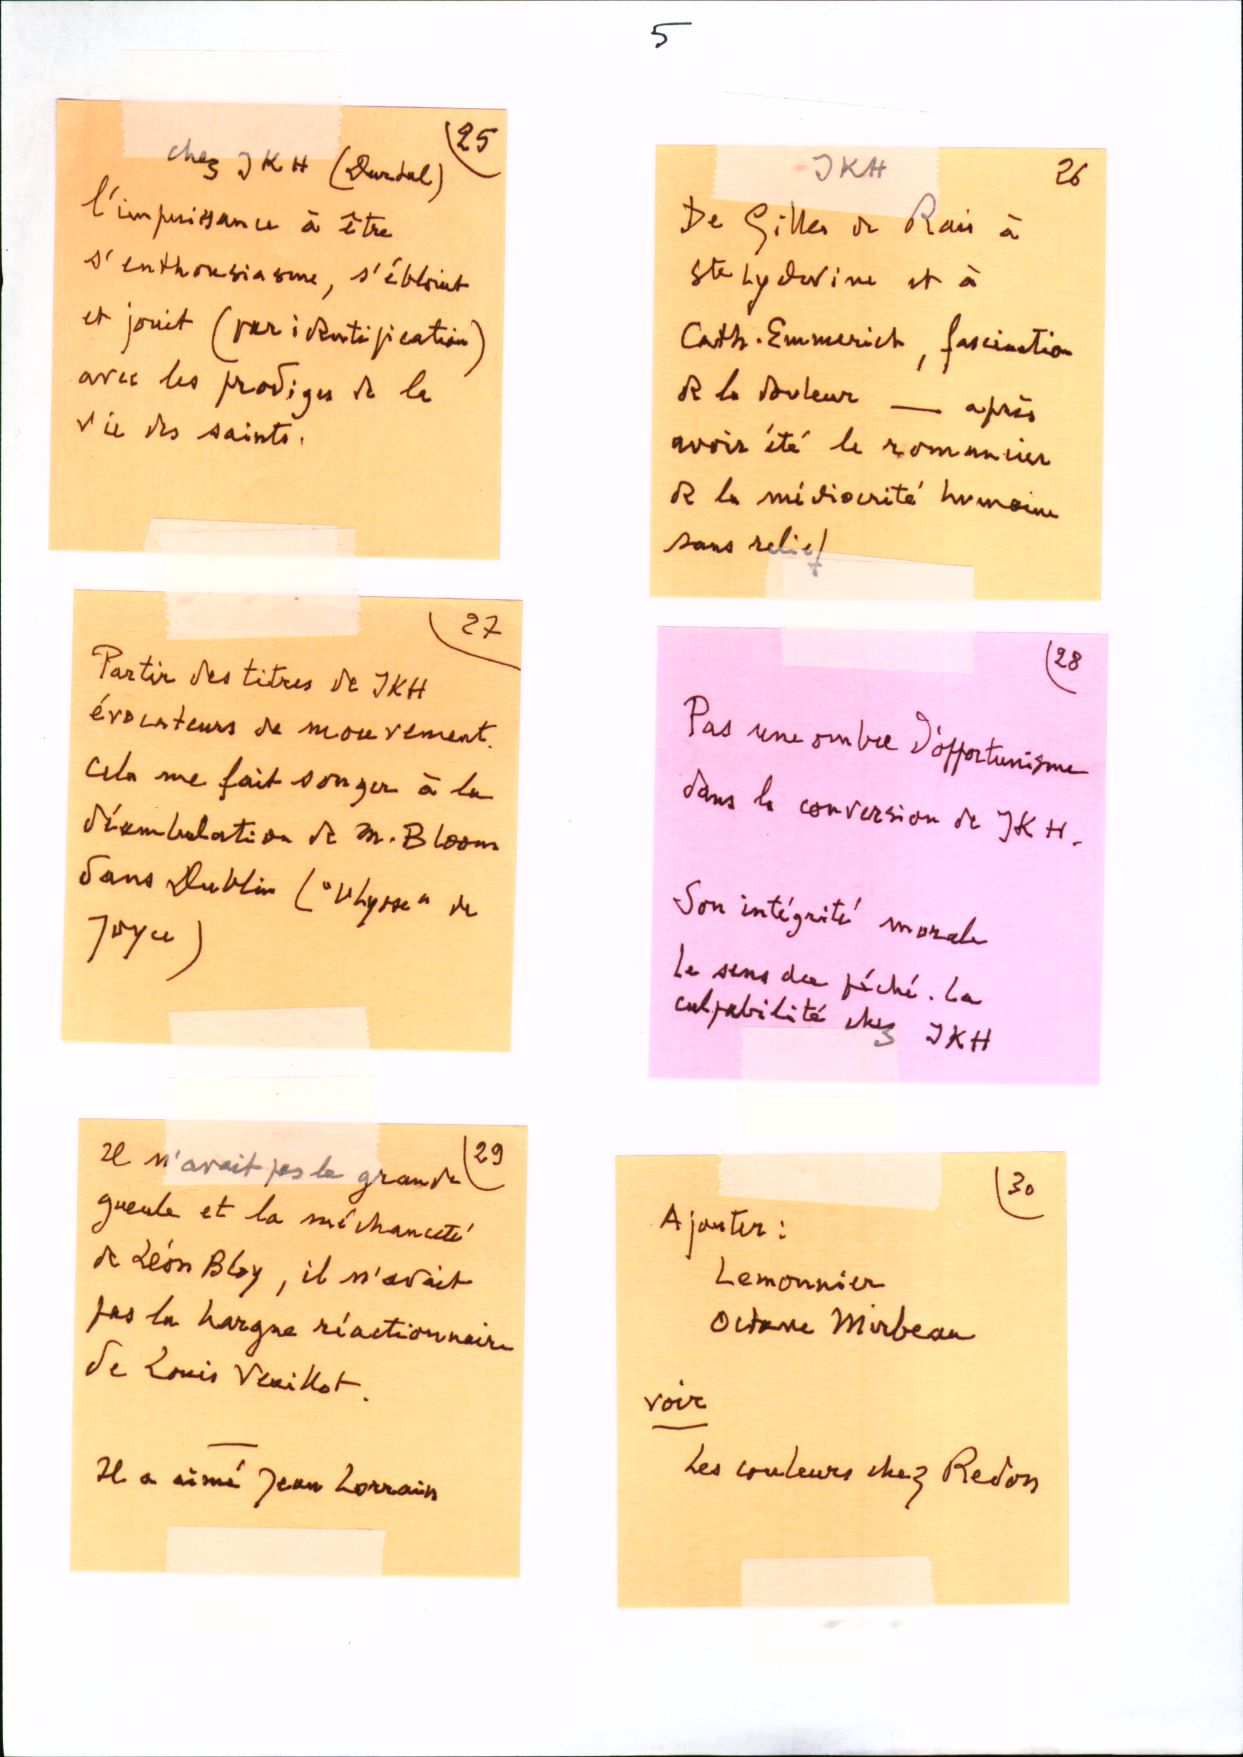 5
25
chez JKH (Durtal)
l'impuissance à être
s'enthousiasme, s'éblouit
et jouit (par identification)
avec les prodiges de la
vie des saints.
26
JKH
De Gilles de Rais à
Ste Lydwine et à
Cath. Emmerich, fascination
de la douleur — après
avoir été le romancier
de la médiocrité humaine
sans relief
27
Partir des titres de JKH
évocateurs de mouvement.
Cela me fait songer à la
déambulation de M. Bloom
dans Dublin ("Ulysse" de
Joyce)
28
Pas une ombre d'opportunisme
dans la conversion de JKH.
Son intégrité morale
Le sens du péché. La
culpabilité chez JKH
29
Il n'avait pas la grande
gueule et la méchanceté
de Léon Bloy, il n'avait
pas la hargne réactionnaire
de Louis Veuillot.
Il a aimé Jean Lorrain
30
Ajouter :
Lemonnier
Octave Mirbeau
voir
Les couleurs chez Redon